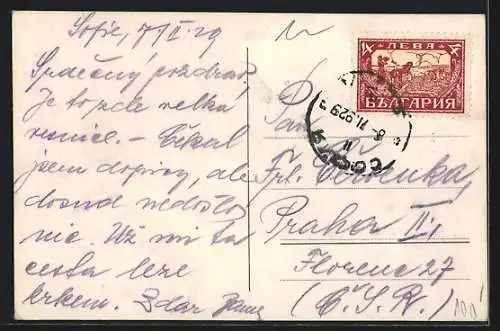 Sofie, 7/II.29
Srdečný pozdrav!
Je to zde velká
vinice. – Čekal
jsem dopisy, ale
dosud nedošlo
nic. Už mi ta
cesta leze
krkem. Zdar
1 ЛЕВА 1
БЪЛГАРИЯ
8 II.929
Pan
Frt. Červenka,
Praha II;
Florenc 27
(Č.S.R.)
100